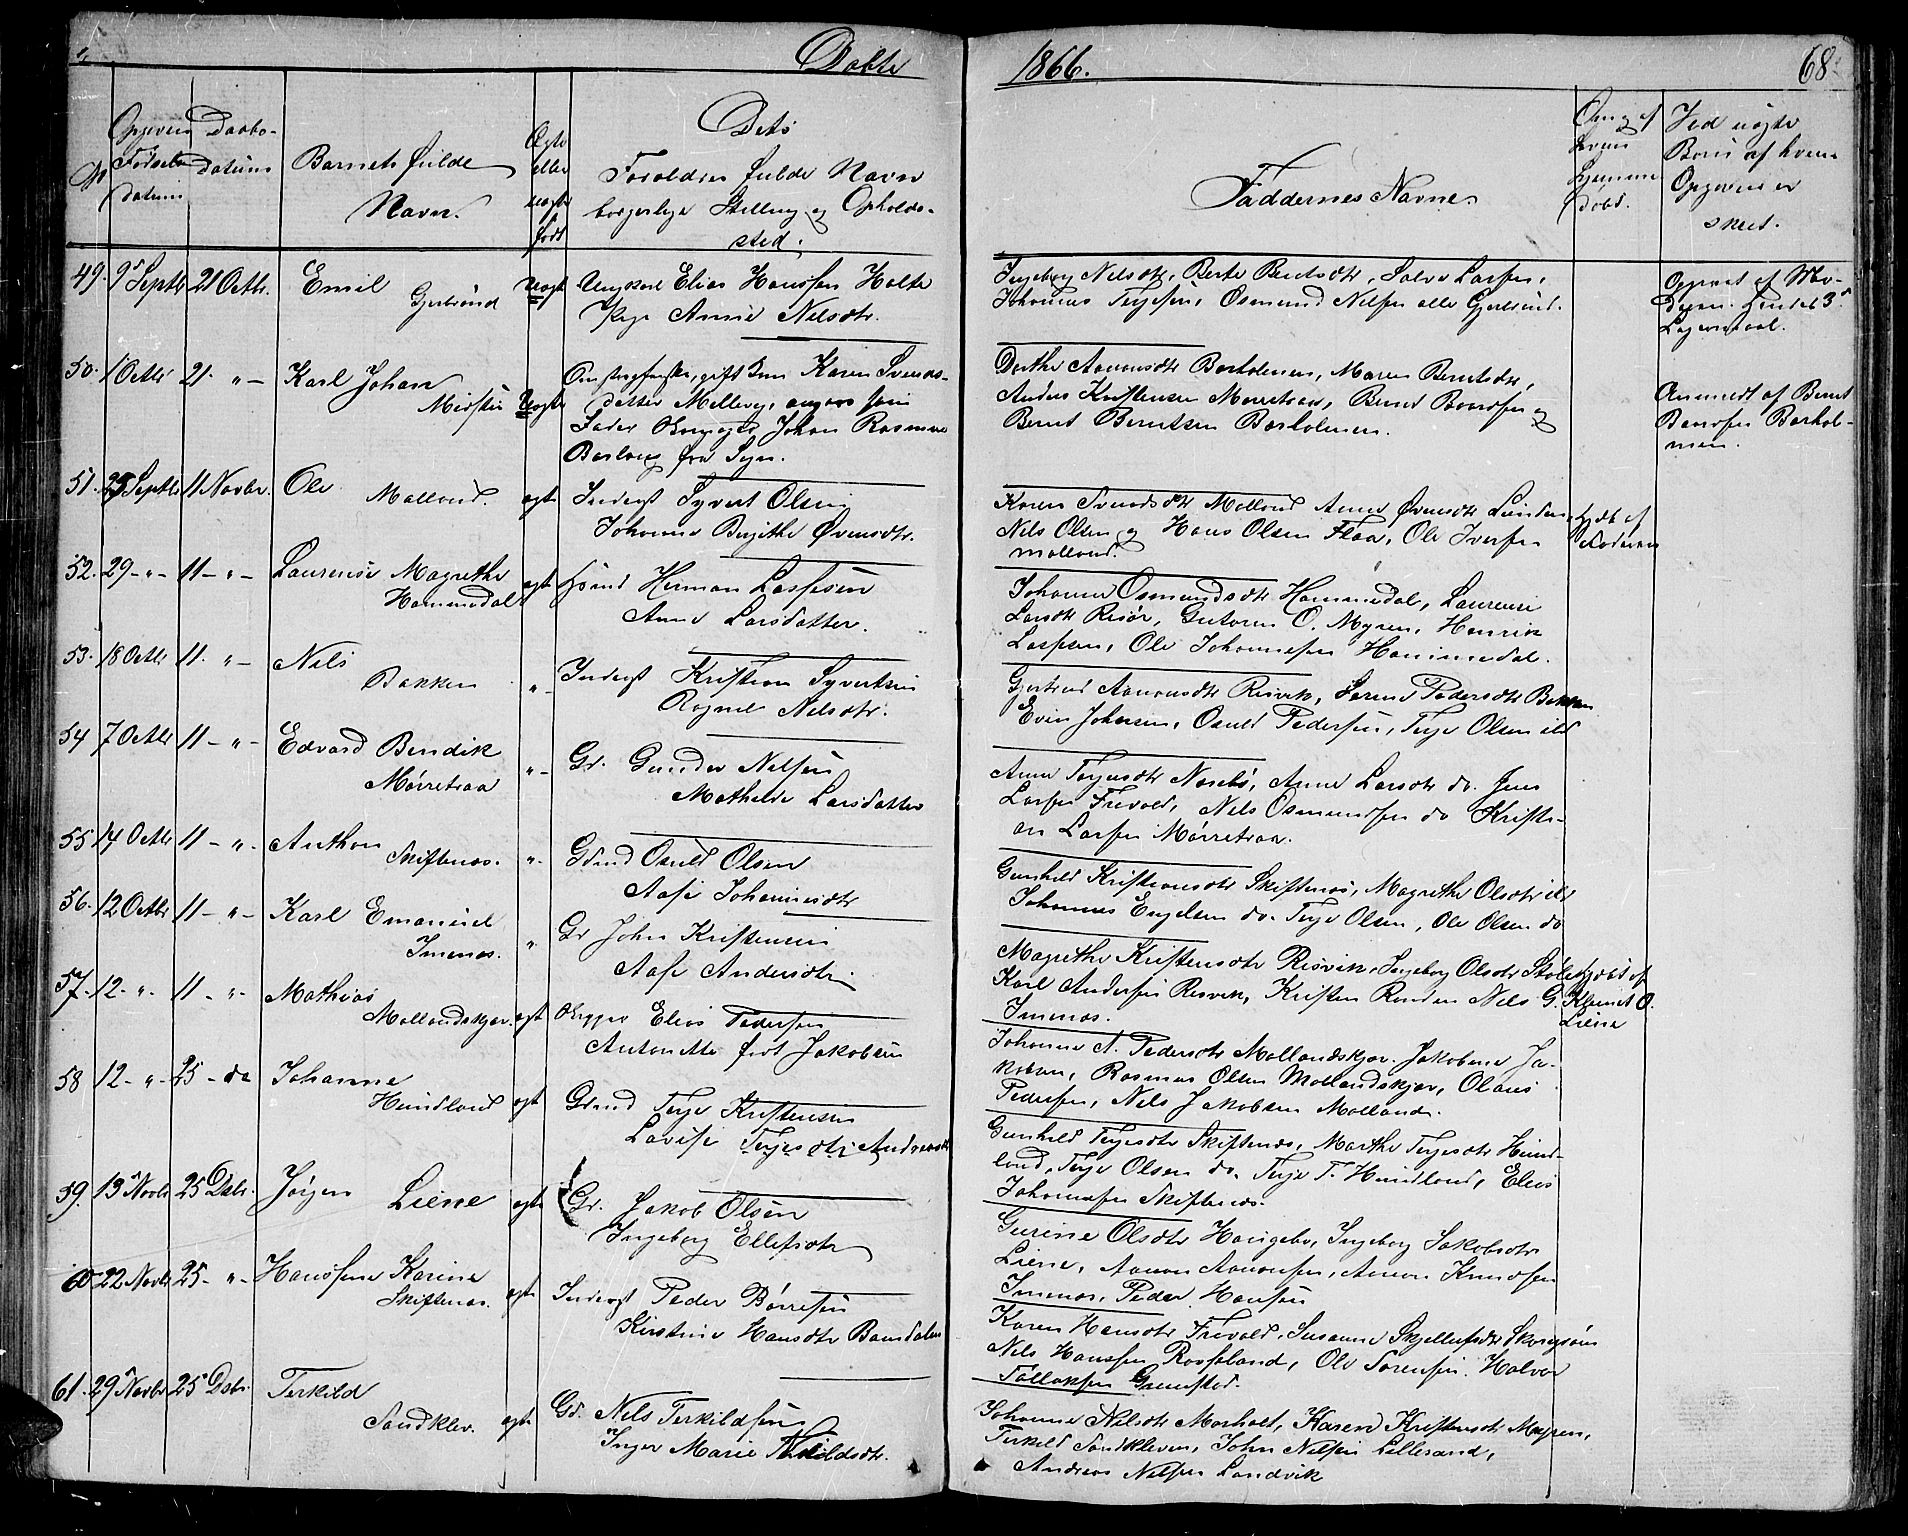 Døbte 1866. 68.
No Opgivens Fødsels datum
Daabs-datum
Barnets fulde Navn.
Ægte eller uægte født
Dets Forældres fulde Navn borgerlige Stilling og Opholds-sted.
Faddernes Navne.
Om og af hvem hjemme døbt.
Ved uægte Børn af hvem Opgiven er skeet.
49. 9 Septbr 21 Octbr. Emil Gjertsund Uægt Ungkarl Elias Hansen Holte
Pige Anne Nilsdtr.
Ingeborg Nilsdtr, Berte Berntsdtr, Salve Larsen,
Johannes Terjesen, Osmund Nilsen alle Gjertsund.
Opgivet af Moderen. Hendes 3
Leiermaal.
50. 1 Octbr 21 " Karl Johan Uægte
gift Karen Svends-
datter Mellevy, angav som
Fader Johan Rasmus
fra
Dorthe Aanonsdtr Borholmen, Maren Berntsdtr,
Anders Kristensen Mørretraa, Bernt Baardsen og
Bernt Berntsen Borholmen.
Anmeldt af Bernt
Baardsen Borhol-
men.
51. 25 Septbr 11 Novbr. Ole Molland. ægte Inderst Syvert Olsen
Johanne Birgithe Øvensdtr.
Karen Svendsdtr Molland Anne Øvensdtr Lunden
Nils Olsen og Hans Olsen Flaa, Ole Iversen
Molland.
hjdbt af
Faderen
52. 29 " 11 " Laurense Magrethe Hammedal ægt Gdmd Herman Larsen
Anne Larsdatter.
Johanne Osmundsdtr Hammedal, Laurense
Larsdtr Risør, Guttorm O. Myren, Henrik
Larsen, Ole Johannesen Hammedal.
53. 18 Octbr 11. " Nils Bakken " Inderst Kristian Syvertsen
Ragnel Nilsdtr.
Gjertrud Aanonsdtr Risvik, Sørine Pedersdtr Bakken
Even Johnsen, Osuld Pedersen, Terje Olsen
54 7 Octbr 11 " Edvard Bendik Mørretraa " Gr. Gunder Nilsen
Mathilde Larsdatter
Anne Terjesdtr Næsbø, Anne Larsdtr do. Jens
Larsen Frivold, Nils Osmundsen do Kristi-
an Larsen Mørretraa.
55 14 Octbr 11 " Anthon Skiftenæs. " Gdmd Osuld Olsen
Aase Johannesdtr
Gunhild Kristiansdtr Skiftenæs, Magrethe Olsdtr
Johannes Engelsen do. Terje Olsen, Ole Olsen do
56. 12 Octbr 11 " Karl Emanuel Imenæs. " Gr John Kristensen
Aase Andersdtr.
Magrethe Kristensdtr Risvik, Ingeborg Olsdtr Støle
Karl Andersen Risvik, Kristen Ronden Nils G.
Imenæs.
hjdbt af
Klemet O.
Liene
57. 12 " 11 " Mathias Mollandskjær. ægt Elias Pedersen
Antonette født Jakobsen
Johanne A. Pedersdtr Mollandskjær. Jakobine Ja-
kobsen, Rasmus Olsen Mollandskjær, Olaus
Pedersen, Nils Jakobsen Molland.
58 12 " 25 do Johanne Hundland ægt Grmd Terje Kristensen
Lovise Terjesdtr Andreasdtr
Gunhild Terjesdtr Skiftenæs, Marthe Terjesdtr Hund-
land, Terje Olsen do. Terje T. Hundland, Elias
Johannesen Skiftenæs.
59. 13 Novbr 25 Dsbr. Jørgen Liene ægt Gr. Jakob Olsen
Ingeborg Ellefsdtr
Gurine Olsdtr Haugebo, Ingeborg Jakobsdtr
Liene, Aanon Aanonsen, Anton Knudsen
Imenæs, Peder Hansen
60 22 Novbr 25 " Hansine Karine Skiftenæs. ægte Inderst Peder Børresen
Kirstine Hansdtr Bamdalen
Karen Hansdtr Frivold, Susanne
Nils Hanssen Roresland, Ole Sørensen. Halvor
Tollaksen Grimstad.
61. 29 Novbr 25 Dsbr. Terkild Sandklev. ægte Gd. Nils Terkildsen
Inger Marie Nilsdtr.
Johanne Nilsdtr Morholt, Karen Kristensdtr Myren,
Terkild Sandkleven, John Nilsen Lillesand,
Andreas Nilsen Landvik